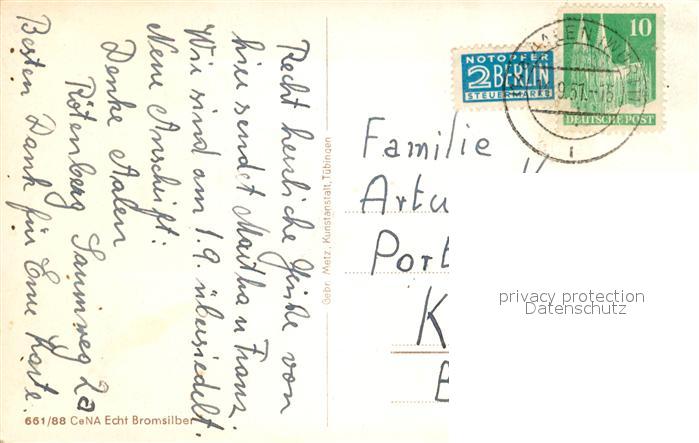 Recht herzliche Grüße von
hier sendet Martha u Franz.
Wir sind am 1.9. übersiedelt.
Neue Anschrift:
Denke Aalen
Rötenberg Saumweg 2a
Besten Dank für Eure Karte.
661/88 CeNA Echt Bromsilber
Gebr. Metz, Kunstanstalt, Tübingen
NOTOPFER
2 BERLIN
STEUERMARKE
10
DEUTSCHE POST
AALEN
Familie
Artu
Port
K
E
privacy protection
Datenschutz